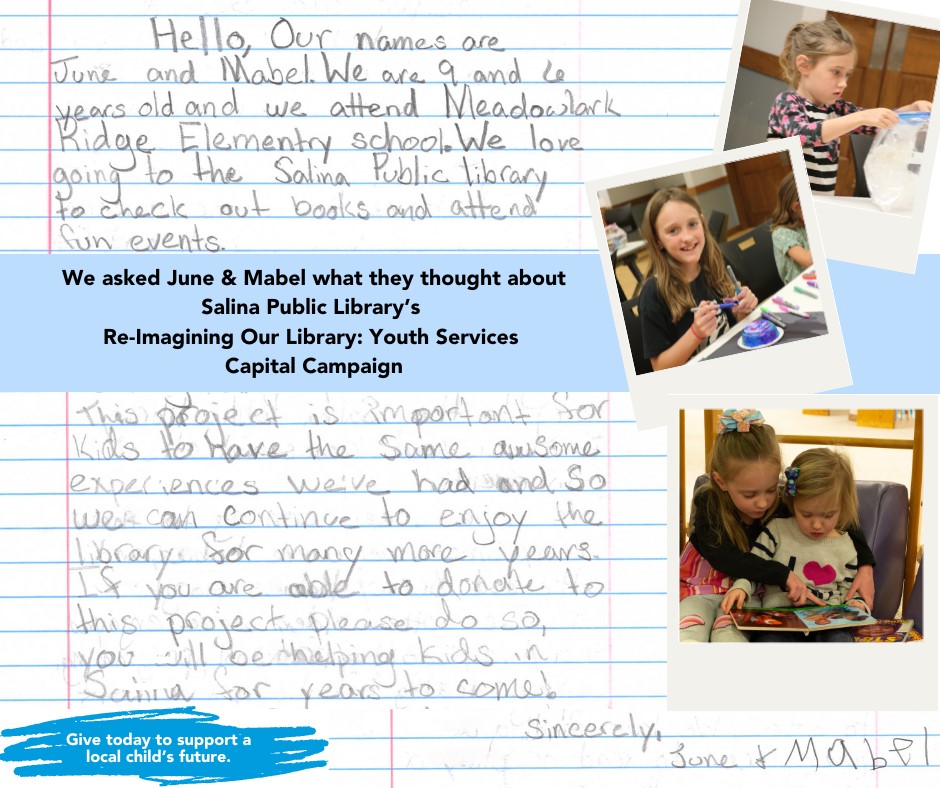 Hello, Our names are
June and Mabel. We are 9 and 6
years old and we attend Meadowlark
Ridge Elementry school. We love
going to the Salina Public library
to check out books and attend
fun events.
We asked June & Mabel what they thought about
Salina Public Library's
Re-Imagining Our Library: Youth Services
Capital Campaign
This project is important for
Kids to Have the same awsome
experiences we've had and so
we can continue to enjoy the
library for many more years.
If you are able to donate to
this project please do so,
you will be helping kids in
Sainna for years to come!
Sincerely,
June & Mabel
Give today to support a
local child's future.